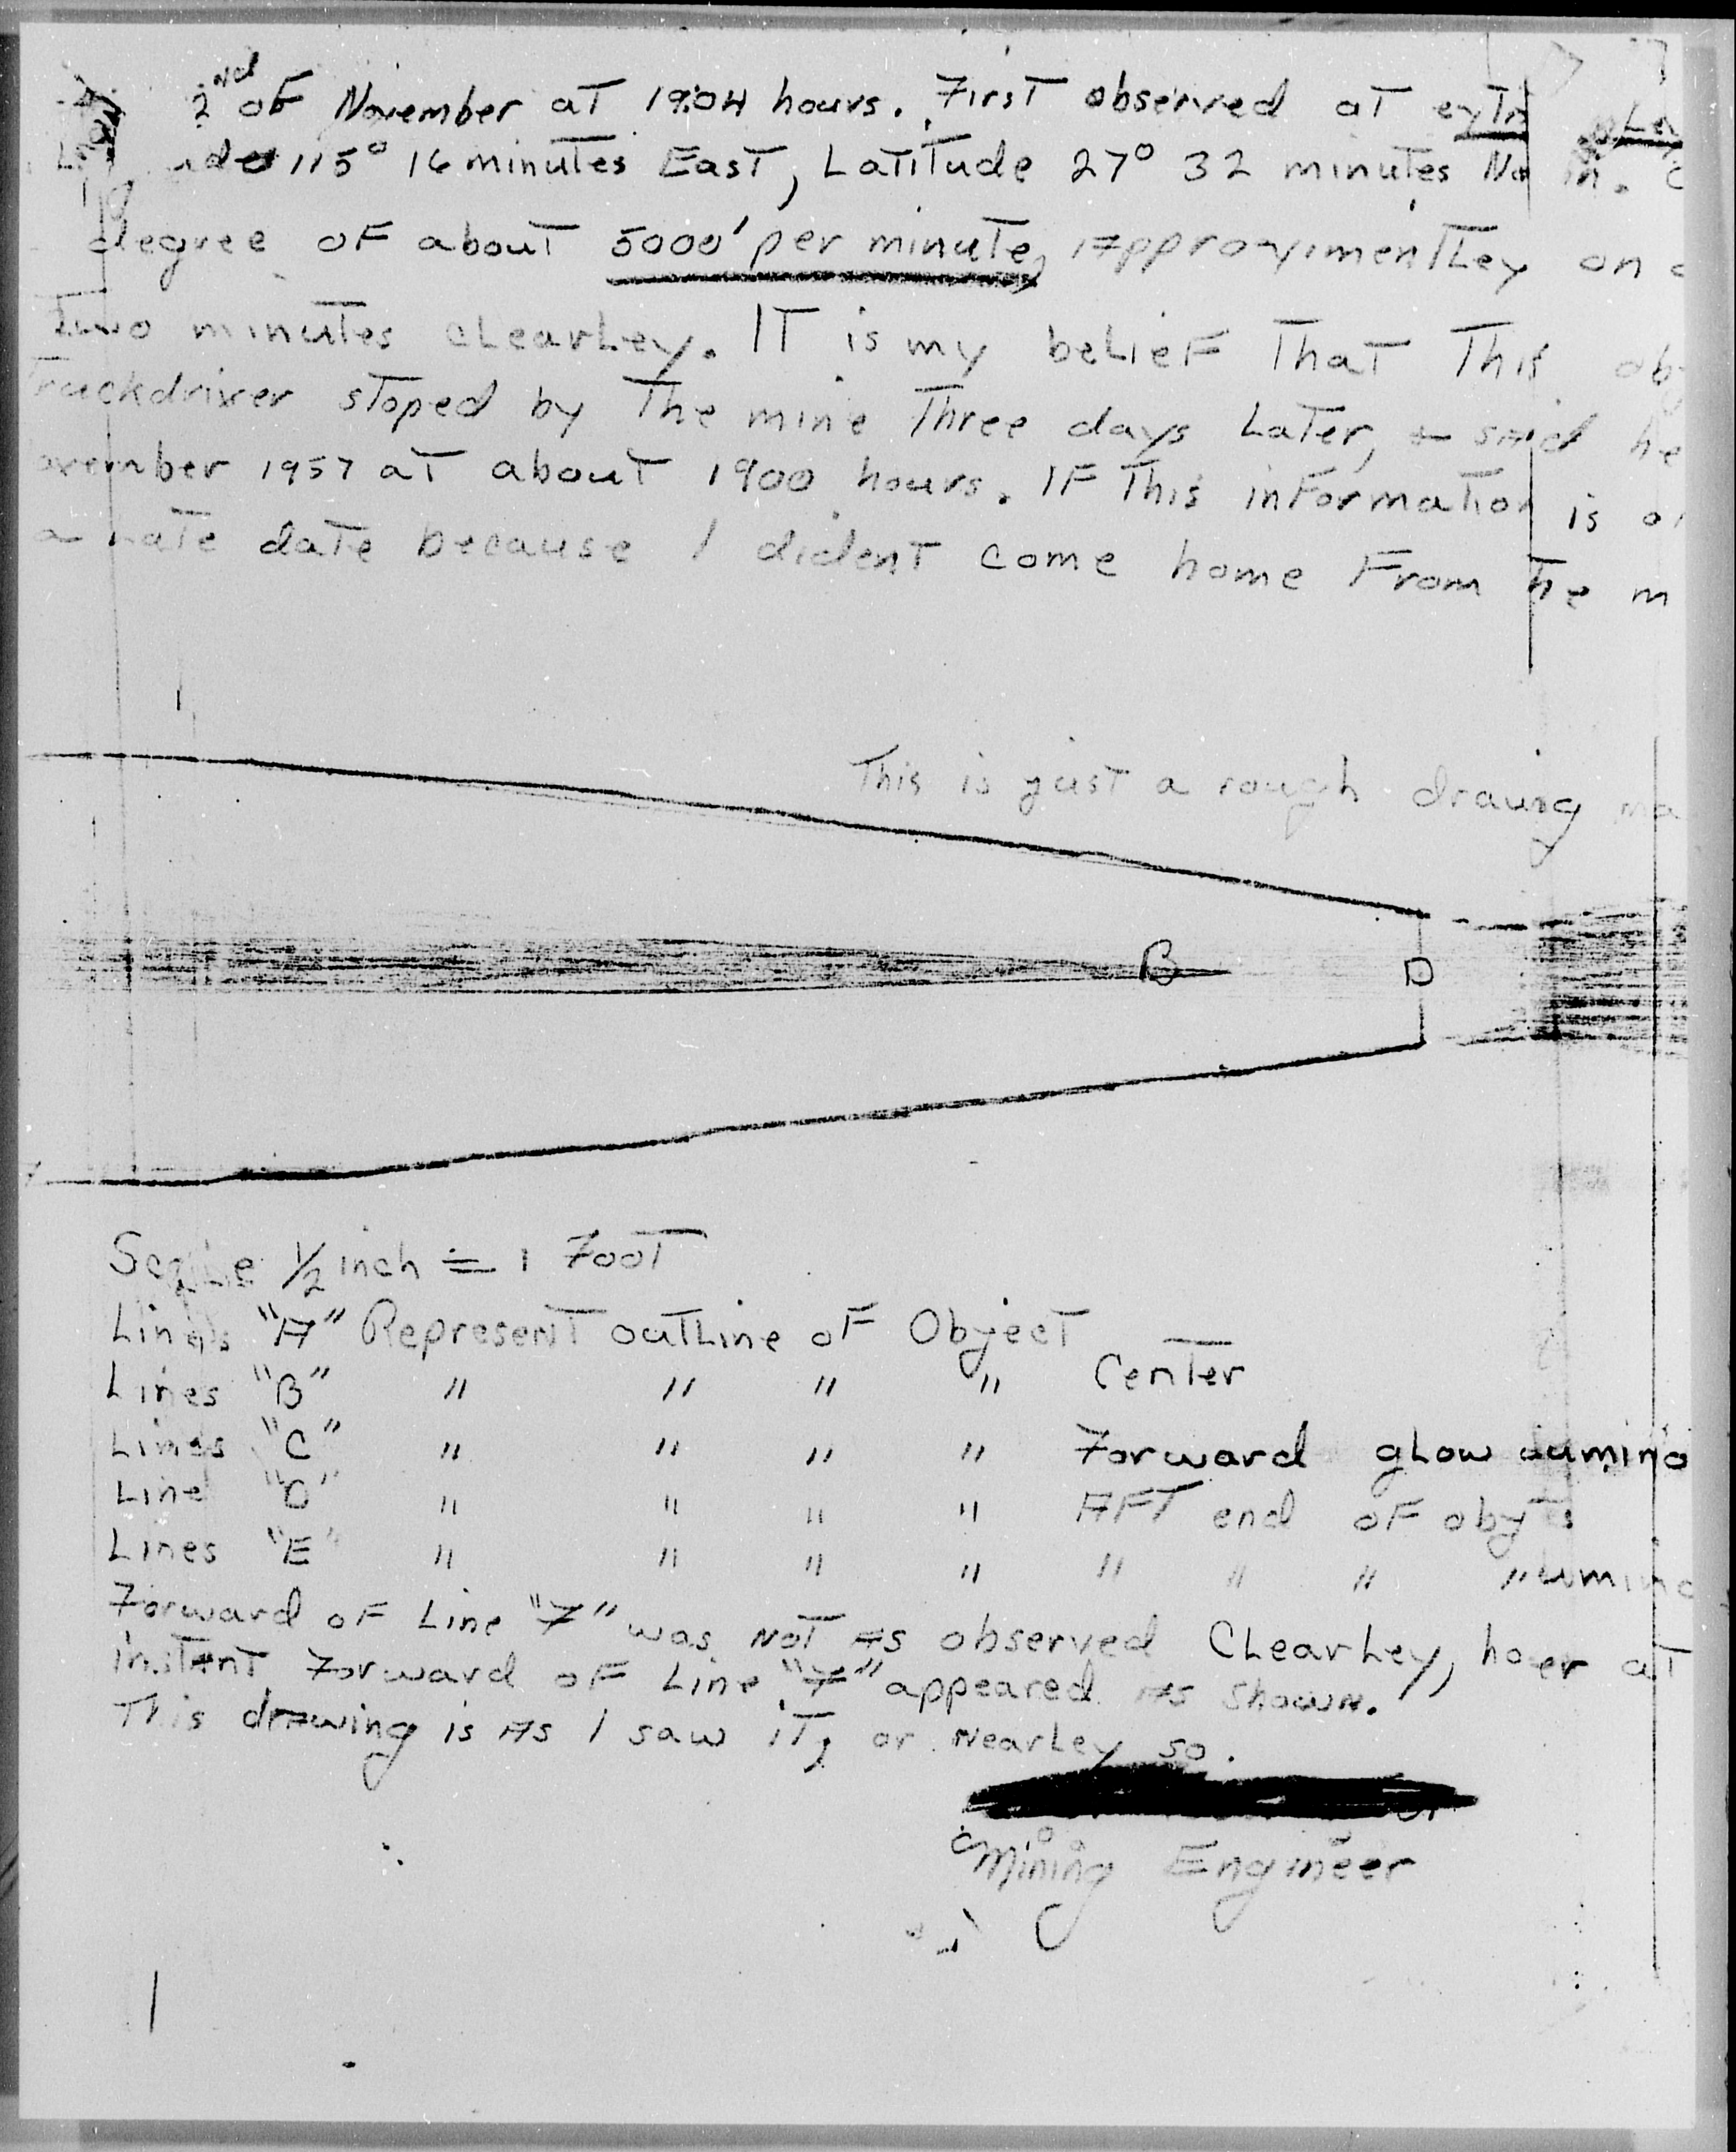 2nd of November at 19:04 hours. First observed at
115° 16 minutes East, Latitude 27° 32 minutes
degree of about 5000' per minute, Approximentley on
two minutes clearley. IT is my belief That This
Truckdriver stoped by The mine Three days Later, + said he
ovember 1957 at about 1900 hours. If This information is
a Late date because I dident come home From The m
This is just a rough drawing ma
B
D
Scale 1/2 inch = 1 Foot
Lines "A" Represent outline of Object
Lines "B" " " " " Center
Lines "C" " " " " Forward glow Lumino
Line "D" " " " " AFT end of
Lines "E" " " " " " " " " Lumino
Forward of Line "F" was Not As observed Clearley, at
instant Forward of Line "F" appeared As shown.
This drawing is As I saw it, or Nearley so.
Mining Engineer